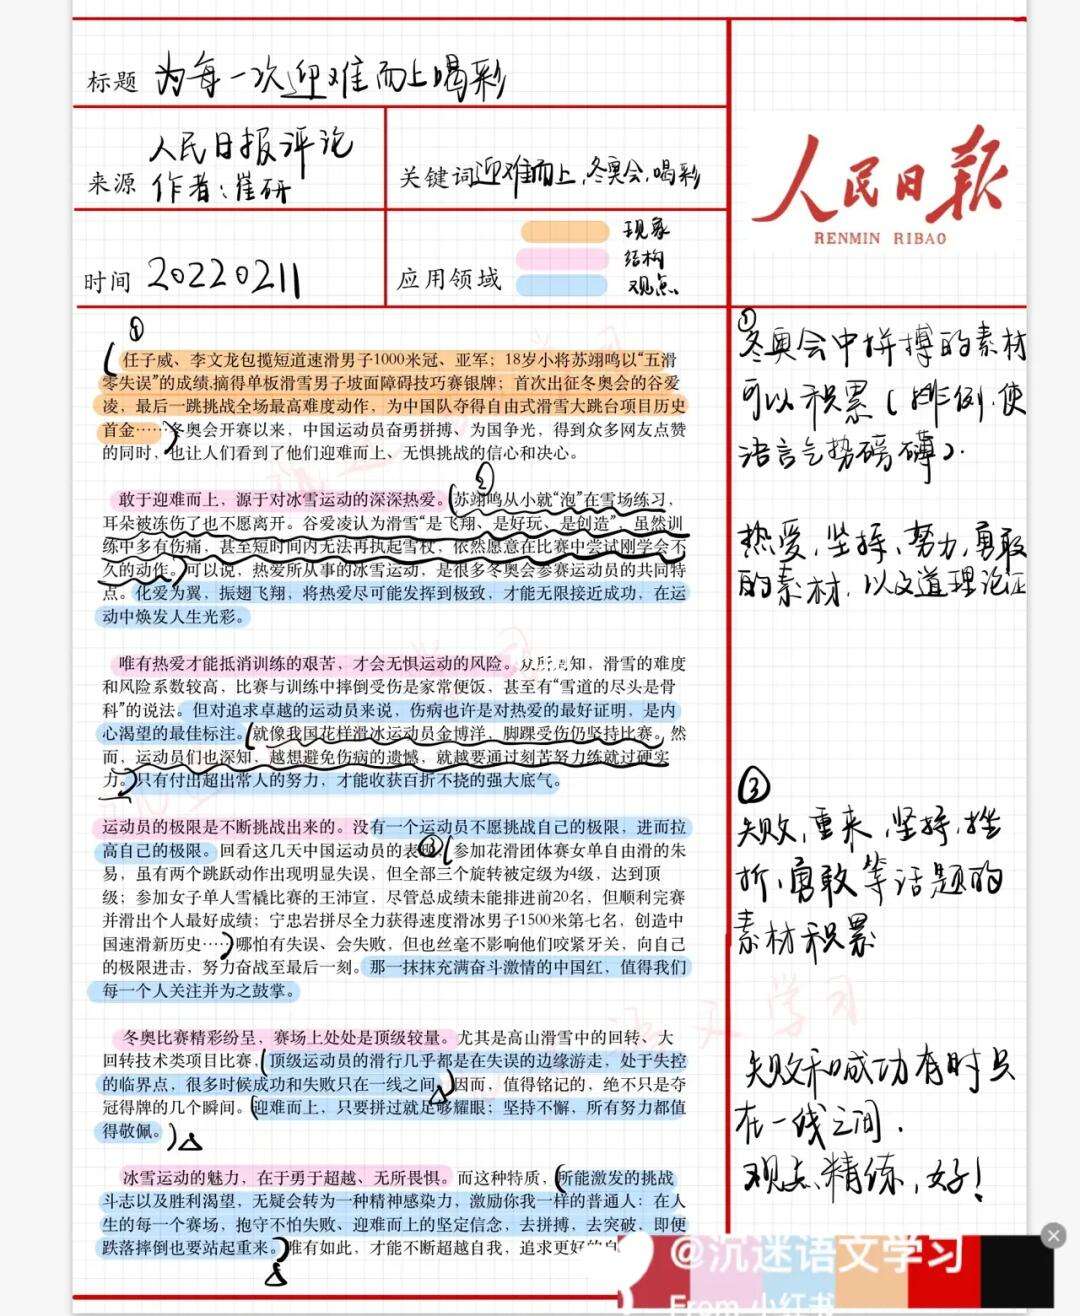 标题 为每一次迎难而上喝彩
来源 人民日报评论
作者：崔研
关键词 迎难而上，冬奥会，喝彩
人民日报
RENMIN RIBAO
时间 20220211
应用领域
现象
结构
观点
①
任子威、李文龙包揽短道速滑男子1000米冠、亚军；18岁小将苏翊鸣以“五滑
零失误”的成绩.摘得单板滑雪男子坡面障碍技巧赛银牌；首次出征冬奥会的谷爱
凌，最后一跳挑战全场最高难度动作，为中国队夺得自由式滑雪大跳台项目历史
首金……冬奥会开赛以来，中国运动员奋勇拼搏、为国争光，得到众多网友点赞
的同时，也让人们看到了他们迎难而上、无惧挑战的信心和决心。
②
敢于迎难而上，源于对冰雪运动的深深热爱。苏翊鸣从小就“泡”在雪场练习，
耳朵被冻伤了也不愿离开。谷爱凌认为滑雪“是飞翔、是好玩、是创造”，虽然训
练中多有伤痛，甚至短时间内无法再执起雪杖，依然愿意在比赛中尝试刚学会不
久的动作。可以说，热爱所从事的冰雪运动，是很多冬奥会参赛运动员的共同特
点。化爱为翼，振翅飞翔，将热爱尽可能发挥到极致，才能无限接近成功，在运
动中焕发人生光彩。
唯有热爱才能抵消训练的艰苦，才会无惧运动的风险。众所周知，滑雪的难度
和风险系数较高，比赛与训练中摔倒受伤是家常便饭，甚至有“雪道的尽头是骨
科”的说法。但对追求卓越的运动员来说，伤病也许是对热爱的最好证明，是内
心渴望的最佳标注。就像我国花样滑冰运动员金博洋、脚踝受伤仍坚持比赛。然
而，运动员们也深知，越想避免伤病的遗憾，就越要通过刻苦努力练就过硬实
力。只有付出超出常人的努力，才能收获百折不挠的强大底气。
运动员的极限是不断挑战出来的。没有一个运动员不愿挑战自己的极限，进而拉
高自己的极限。回看这几天中国运动员的表现，参加花滑团体赛女单自由滑的朱
易，虽有两个跳跃动作出现明显失误，但全部三个旋转被定级为4级，达到顶
级；参加女子单人雪橇比赛的王沛宣，尽管总成绩未能排进前20名，但顺利完赛
并滑出个人最好成绩；宁忠岩拼尽全力获得速度滑冰男子1500米第七名，创造中
国速滑新历史……哪怕有失误、会失败，但也丝毫不影响他们咬紧牙关，向自己
的极限进击，努力奋战至最后一刻。那一抹抹充满奋斗激情的中国红，值得我们
每一个人关注并为之鼓掌。
冬奥比赛精彩纷呈，赛场上处处是顶级较量。尤其是高山滑雪中的回转、大
回转技术类项目比赛，顶级运动员的滑行几乎都是在失误的边缘游走，处于失控
的临界点，很多时候成功和失败只在一线之间。因而，值得铭记的，绝不只是夺
冠得牌的几个瞬间。迎难而上，只要拼过就足够耀眼；坚持不懈，所有努力都值
得敬佩。
冰雪运动的魅力，在于勇于超越、无所畏惧。而这种特质，所能激发的挑战
斗志以及胜利渴望，无疑会转为一种精神感染力，激励你我一样的普通人：在人
生的每一个赛场，抱守不怕失败、迎难而上的坚定信念，去拼搏，去突破，即便
跌落摔倒也要站起重来。唯有如此，才能不断超越自我，追求更好的自
①
冬奥会中拼搏的素材
可以积累（排例，使
语言气势磅礴）.
热爱，坚持，努力，勇敢
的素材，以文道理论证
③
失败，重来，坚持，挫
折，勇敢等话题的
素材积累
失败和成功有时只
在一线之间.
观点精练，好！
@沉迷语文学习
From 小红书